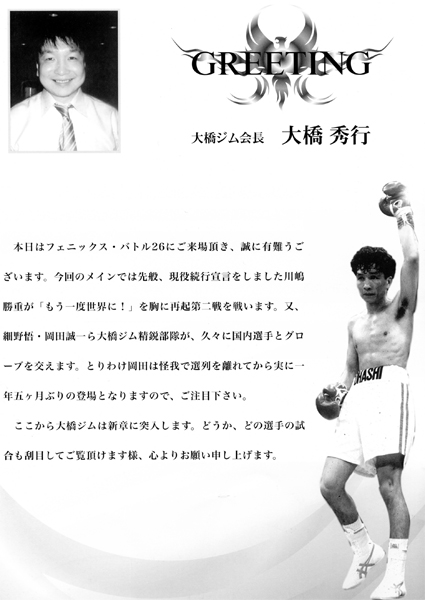 GREETING
大橋ジム会長 大橋 秀行
本日はフェニックス・バトル26にご来場頂き、誠に有難うご
ざいます。今回のメインでは先般、現役続行宣言をしました川嶋
勝重が「もう一度世界に！」を胸に再起第二戦を戦います。又、
細野悟・岡田誠一ら大橋ジム精鋭部隊が、久々に国内選手とグロ
ーブを交えます。とりわけ岡田は怪我で選列を離れてから実に一
年五ヶ月ぶりの登場となりますので、ご注目下さい。
ここから大橋ジムは新章に突入します。どうか、どの選手の試
合も刮目してご覧頂けます様、心よりお願い申し上げます。
OHASHI